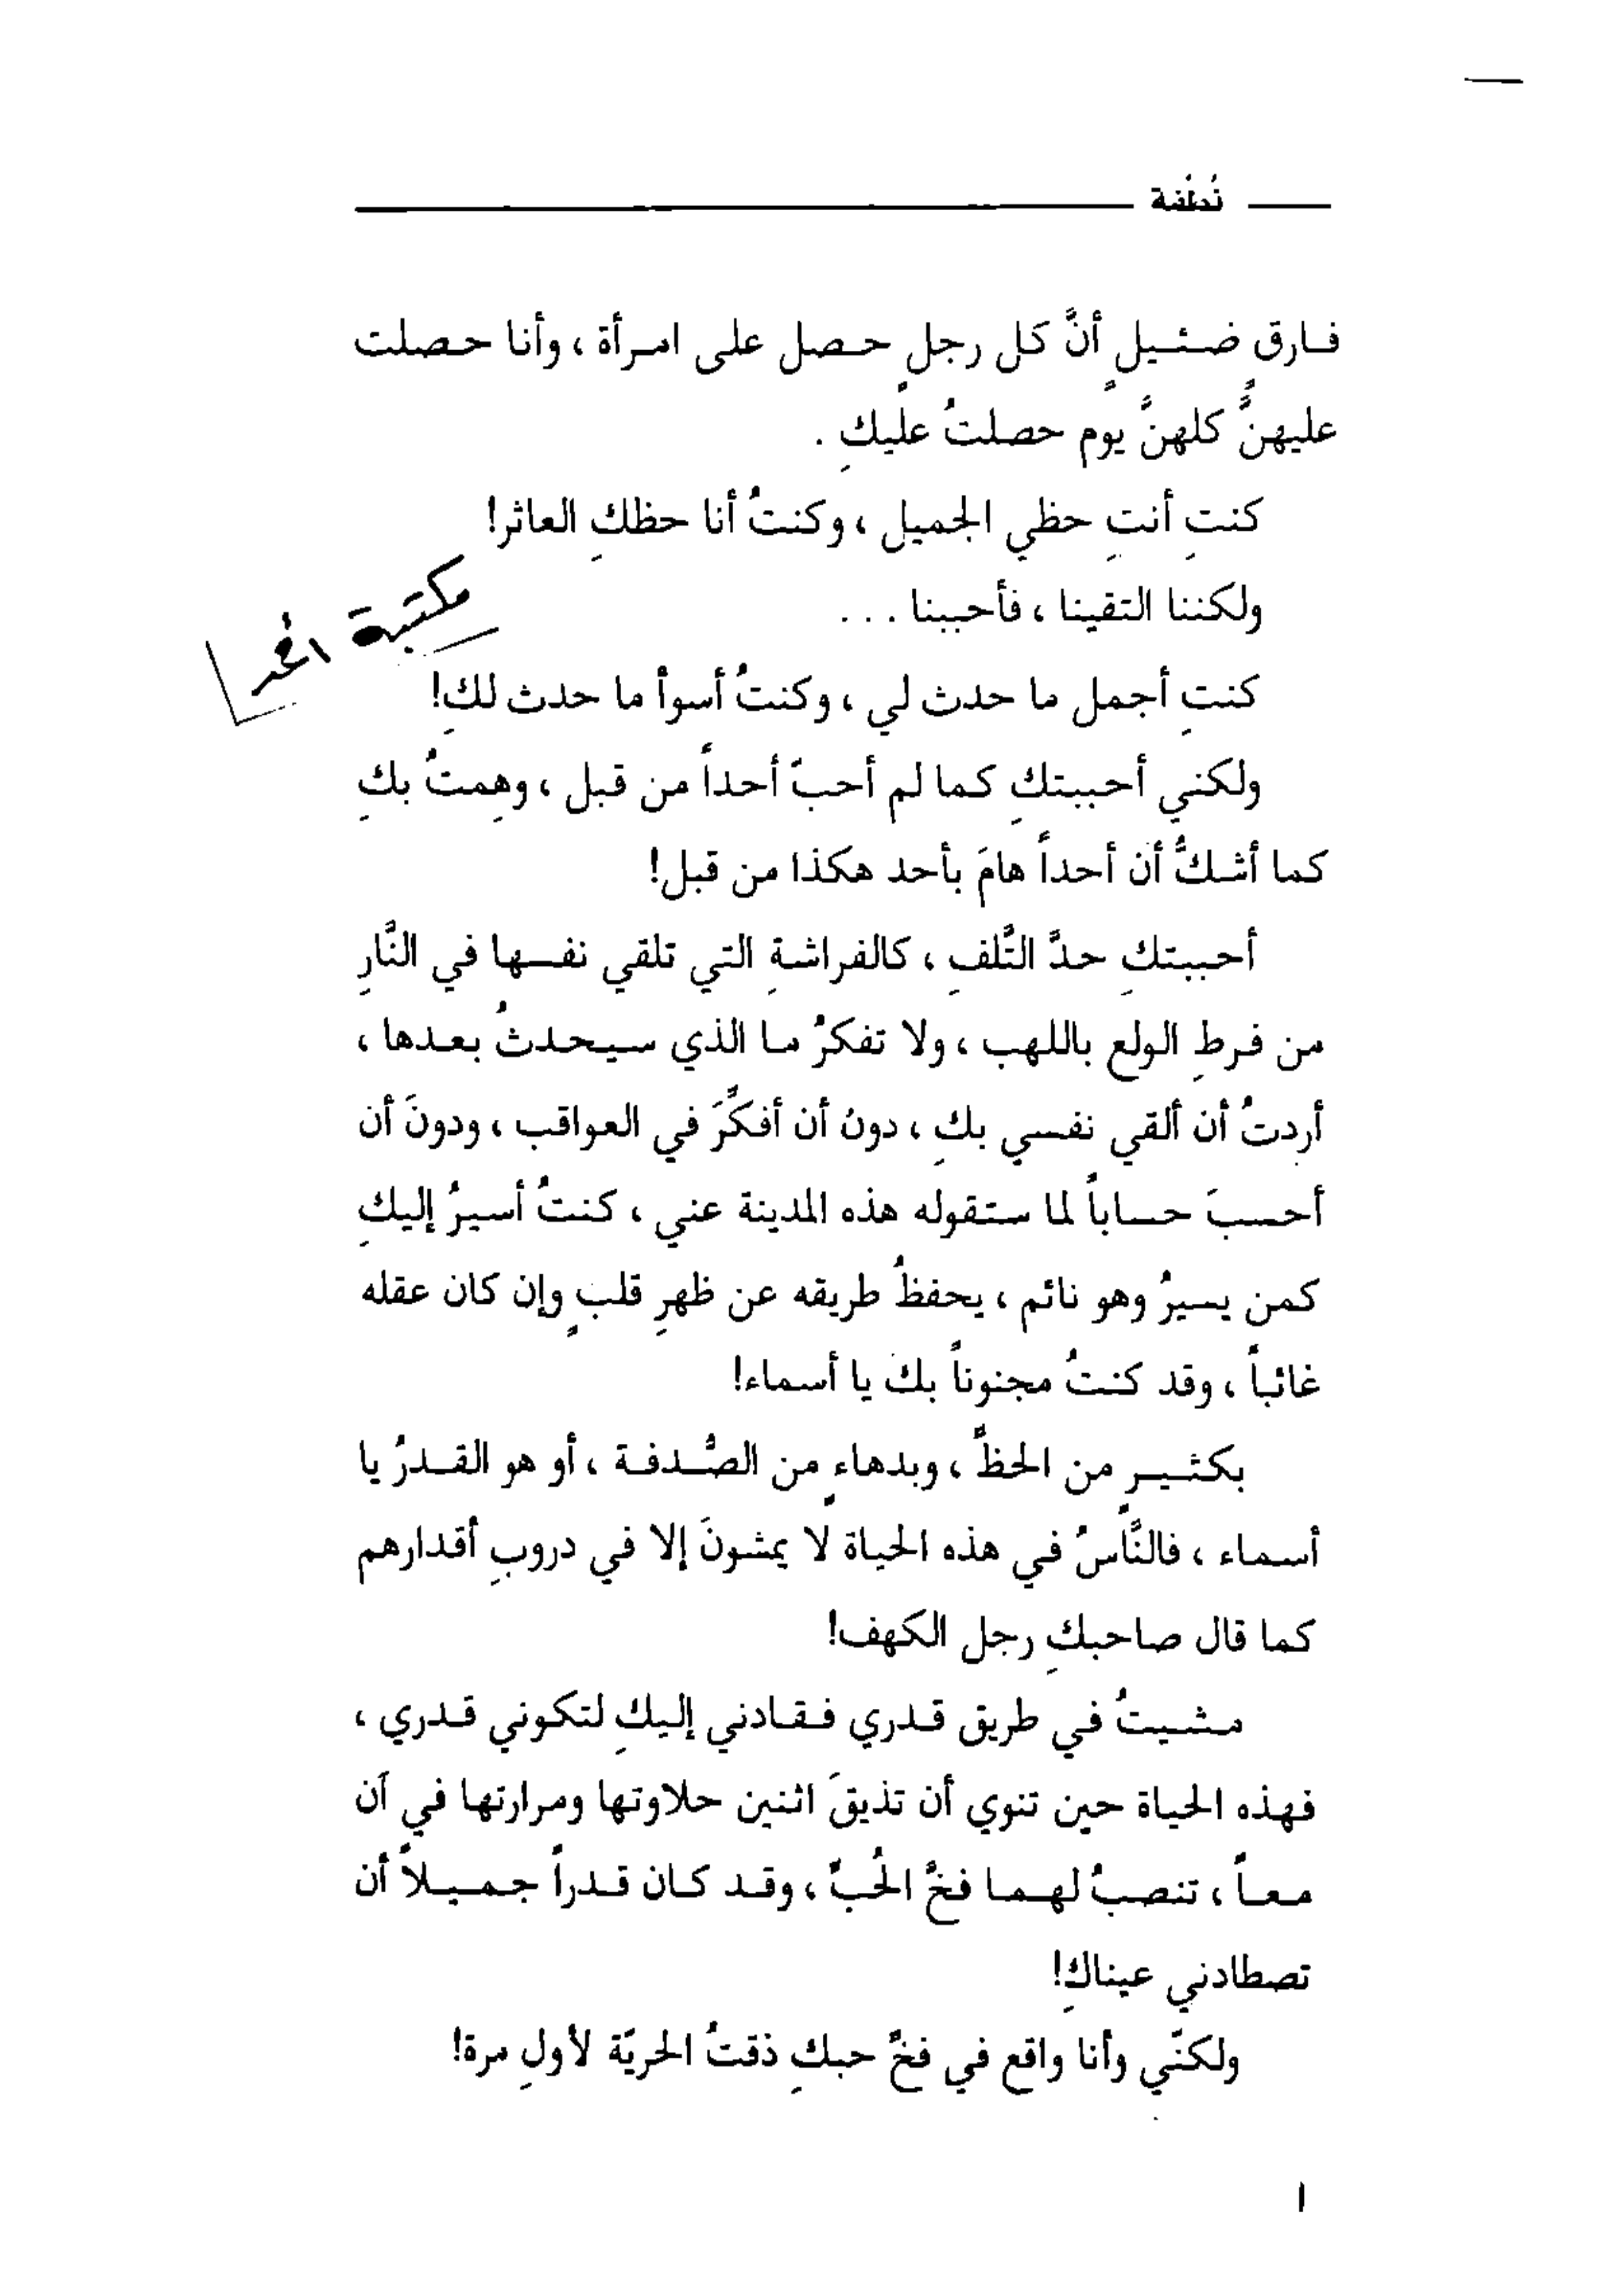 نُطْفة
فارق ضئيلٍ أنَّ كل رجلٍ حصل على امرأة ، وأنا حصلت
عليهنَّ كلهنَّ يوم حصلتُ عليكِ .
كنتِ أنتِ حظي الجميل ، وكنتُ أنا حظكِ العاثر!
ولكننا التقينا ، فأحببنا ...
مكتبة
كنتِ أجمل ما حدث لي ، وكنتُ أسوأ ما حدث لكِ!
ولكني أحببتكِ كما لم أحبّ أحداً من قبل ، وهِمتُ بكِ
كما أشكُّ أن أحداً هامَ بأحد هكذا من قبل!
أحببتكِ حدَّ التَّلفِ ، كالفراشةِ التي تلقي نفسها في النَّارِ
من فرطِ الولع باللهب ، ولا تفكرُ ما الذي سيحدثُ بعدها ،
أردتُ أن ألقي نفسي بكِ ، دون أن أفكِّرَ في العواقب ، ودونَ أن
أحسبَ حساباً لما ستقوله هذه المدينة عني ، كنتُ أسيرُ إليكِ
كمن يسيرُ وهو نائم ، يحفظُ طريقه عن ظهرِ قلبٍ وإن كان عقله
غائباً ، وقد كنتُ مجنوناً بك يا أسماء!
بكثيرٍ من الحظِّ ، وبدهاءٍ من الصُّدفة ، أو هو القدرُ يا
أسماء ، فالنَّاسُ في هذه الحياة لا يمشونَ إلا في دروبِ أقدارهم
كما قال صاحبكِ رجل الكهف!
مشيتُ في طريق قدري فقادني إليكِ لتكوني قدري ،
فهذه الحياة حين تنوي أن تذيقَ اثنين حلاوتها ومرارتها في آن
معاً ، تنصبُ لهما فخَّ الحُبِّ ، وقد كان قدراً جميلاً أن
تصطادني عيناكِ!
ولكنّي وأنا واقع في فخِّ حبكِ ذقتُ الحريّة لأولِ مرة!